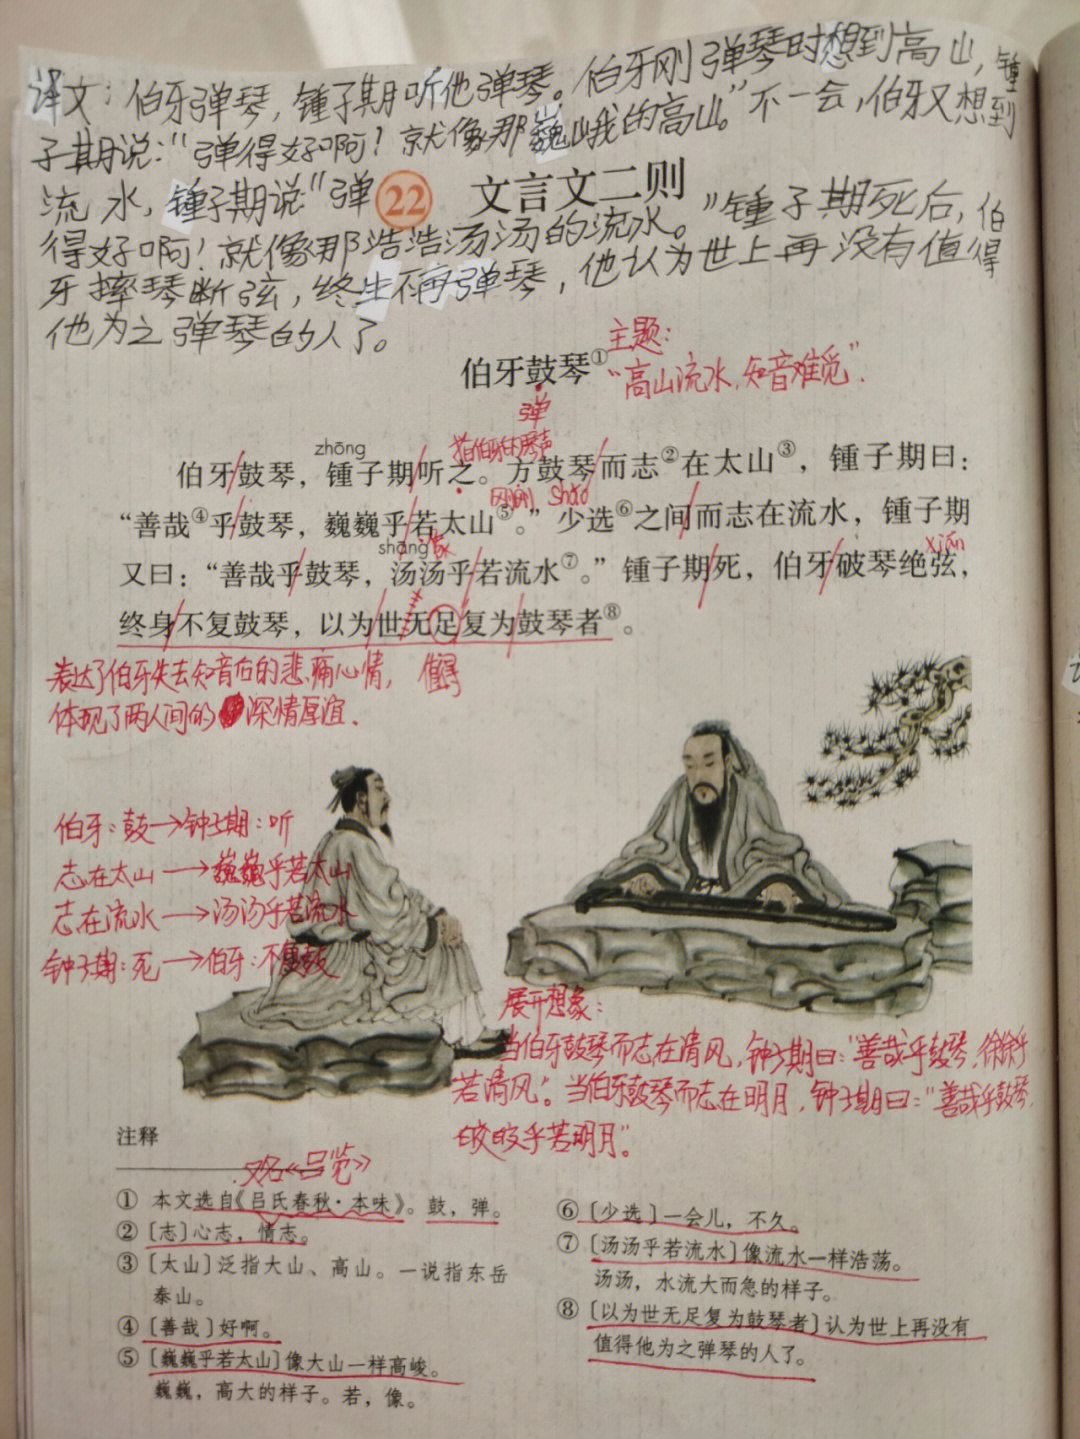 译文：伯牙弹琴，锺子期听他弹琴。伯牙刚弹琴时想到高山，锺
子期说：“弹得好啊！就像那巍峨的高山。”不一会，伯牙又想到
流水，锺子期说“弹
22 文言文二则
得好啊！就像那浩浩汤汤的流水。”锺子期死后，伯
牙摔琴断弦，终生不再弹琴，他认为世上再没有值得
他为之弹琴的人了。
伯牙鼓琴①
主题：
“高山流水，知音难觅”．
弹
zhōng
指伯牙的琴声
伯牙/鼓琴，锺子期/听之。方鼓琴/而志②在太山③，锺子期曰：
刚刚 shào
“善哉④乎/鼓琴，巍巍乎/若太山⑤。”少选⑥之间/而志在流水，锺子期
shāng 像 xián
又曰：“善哉乎/鼓琴，汤汤乎/若流水⑦。”锺子期/死，伯牙/破琴绝弦，
终身/不复鼓琴，以为/世无足复为/鼓琴者⑧。
值得
表达了伯牙失去知音后的悲痛心情，
体现了两人间的深情厚谊．
伯牙：鼓→钟子期：听
志在太山→巍巍乎若太山
志在流水→汤汤乎若流水
钟子期：死→伯牙：不复鼓
展开想象：
当伯牙鼓琴而志在清风，钟子期曰：“善哉乎鼓琴，徐徐乎
若清风”。当伯牙鼓琴而志在明月，钟子期曰：“善哉乎鼓琴，
皎皎乎若明月”。
注释
又名《吕览》
① 本文选自《吕氏春秋·本味》。鼓，弹。
②〔志〕心志，情志。
③〔太山〕泛指大山、高山。一说指东岳
泰山。
④〔善哉〕好啊。
⑤〔巍巍乎若太山〕像大山一样高峻。
巍巍，高大的样子。若，像。
⑥〔少选〕一会儿，不久。
⑦〔汤汤乎若流水〕像流水一样浩荡。
汤汤，水流大而急的样子。
⑧〔以为世无足复为鼓琴者〕认为世上再没有
值得他为之弹琴的人了。